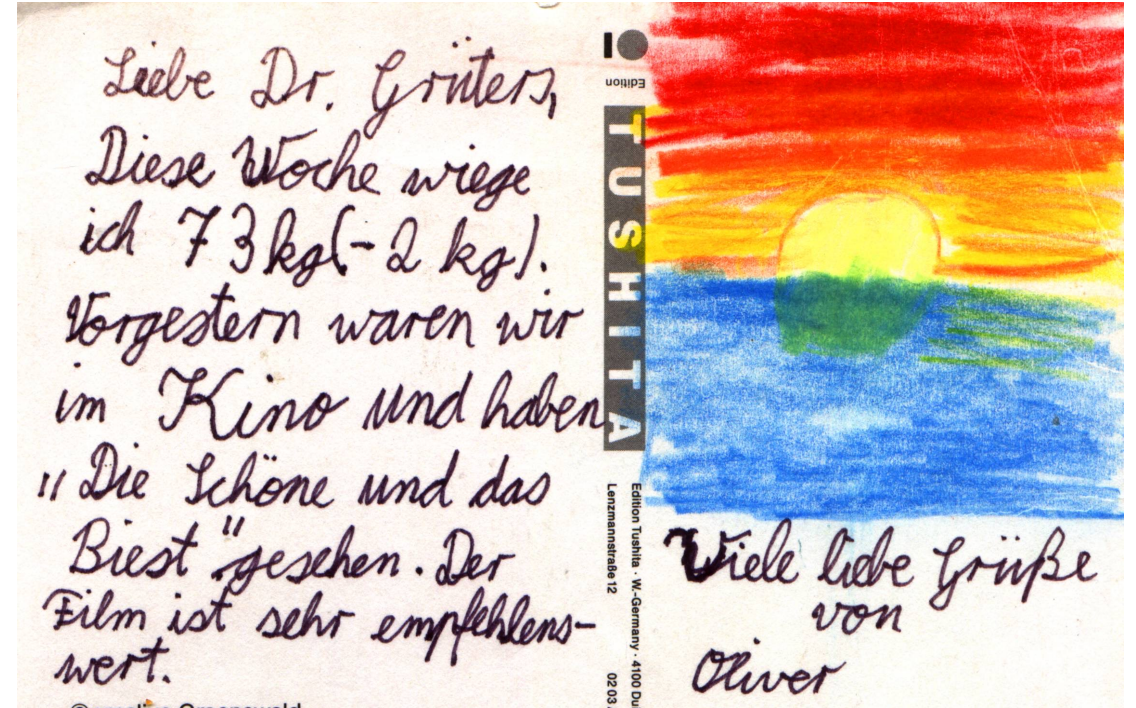 Liebe Dr. Grüters,
Diese Woche wiege
ich 73 kg (- 2 kg).
Vorgestern waren wir
im Kino und haben
"Die Schöne und das
Biest" gesehen. Der
Film ist sehr empfehlens-
wert.
Edition
TUSHITA
Edition Tushita · W.-Germany · 4100 Du
Lenzmannstraße 12 02 03
Viele liebe Grüße
von
Oliver